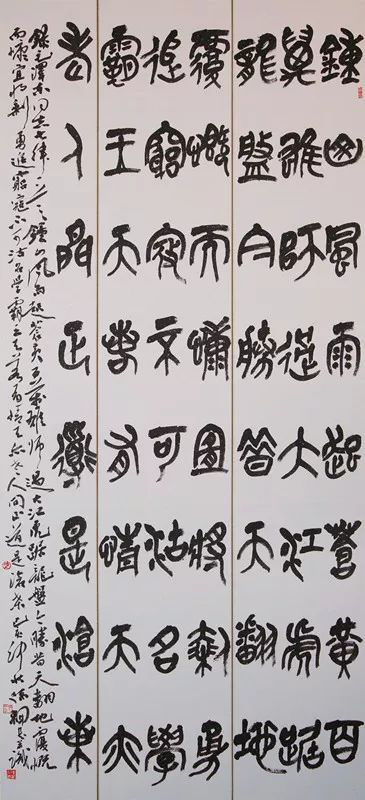 鍾山風雨起蒼黃百
萬雄師過大江虎踞
龍盤今勝昔天翻地
覆慨而慷宜將剩勇
追窮寇不可沽名學
霸王天若有情天亦
老人間正道是滄桑
錄毛澤東同志七律鍾山風雨起蒼黃百萬雄師過大江虎踞龍盤今勝昔天翻地覆慨
而慷宜將剩勇追窮寇不可沽名學霸王天若有情天亦老人間正道是滄桑